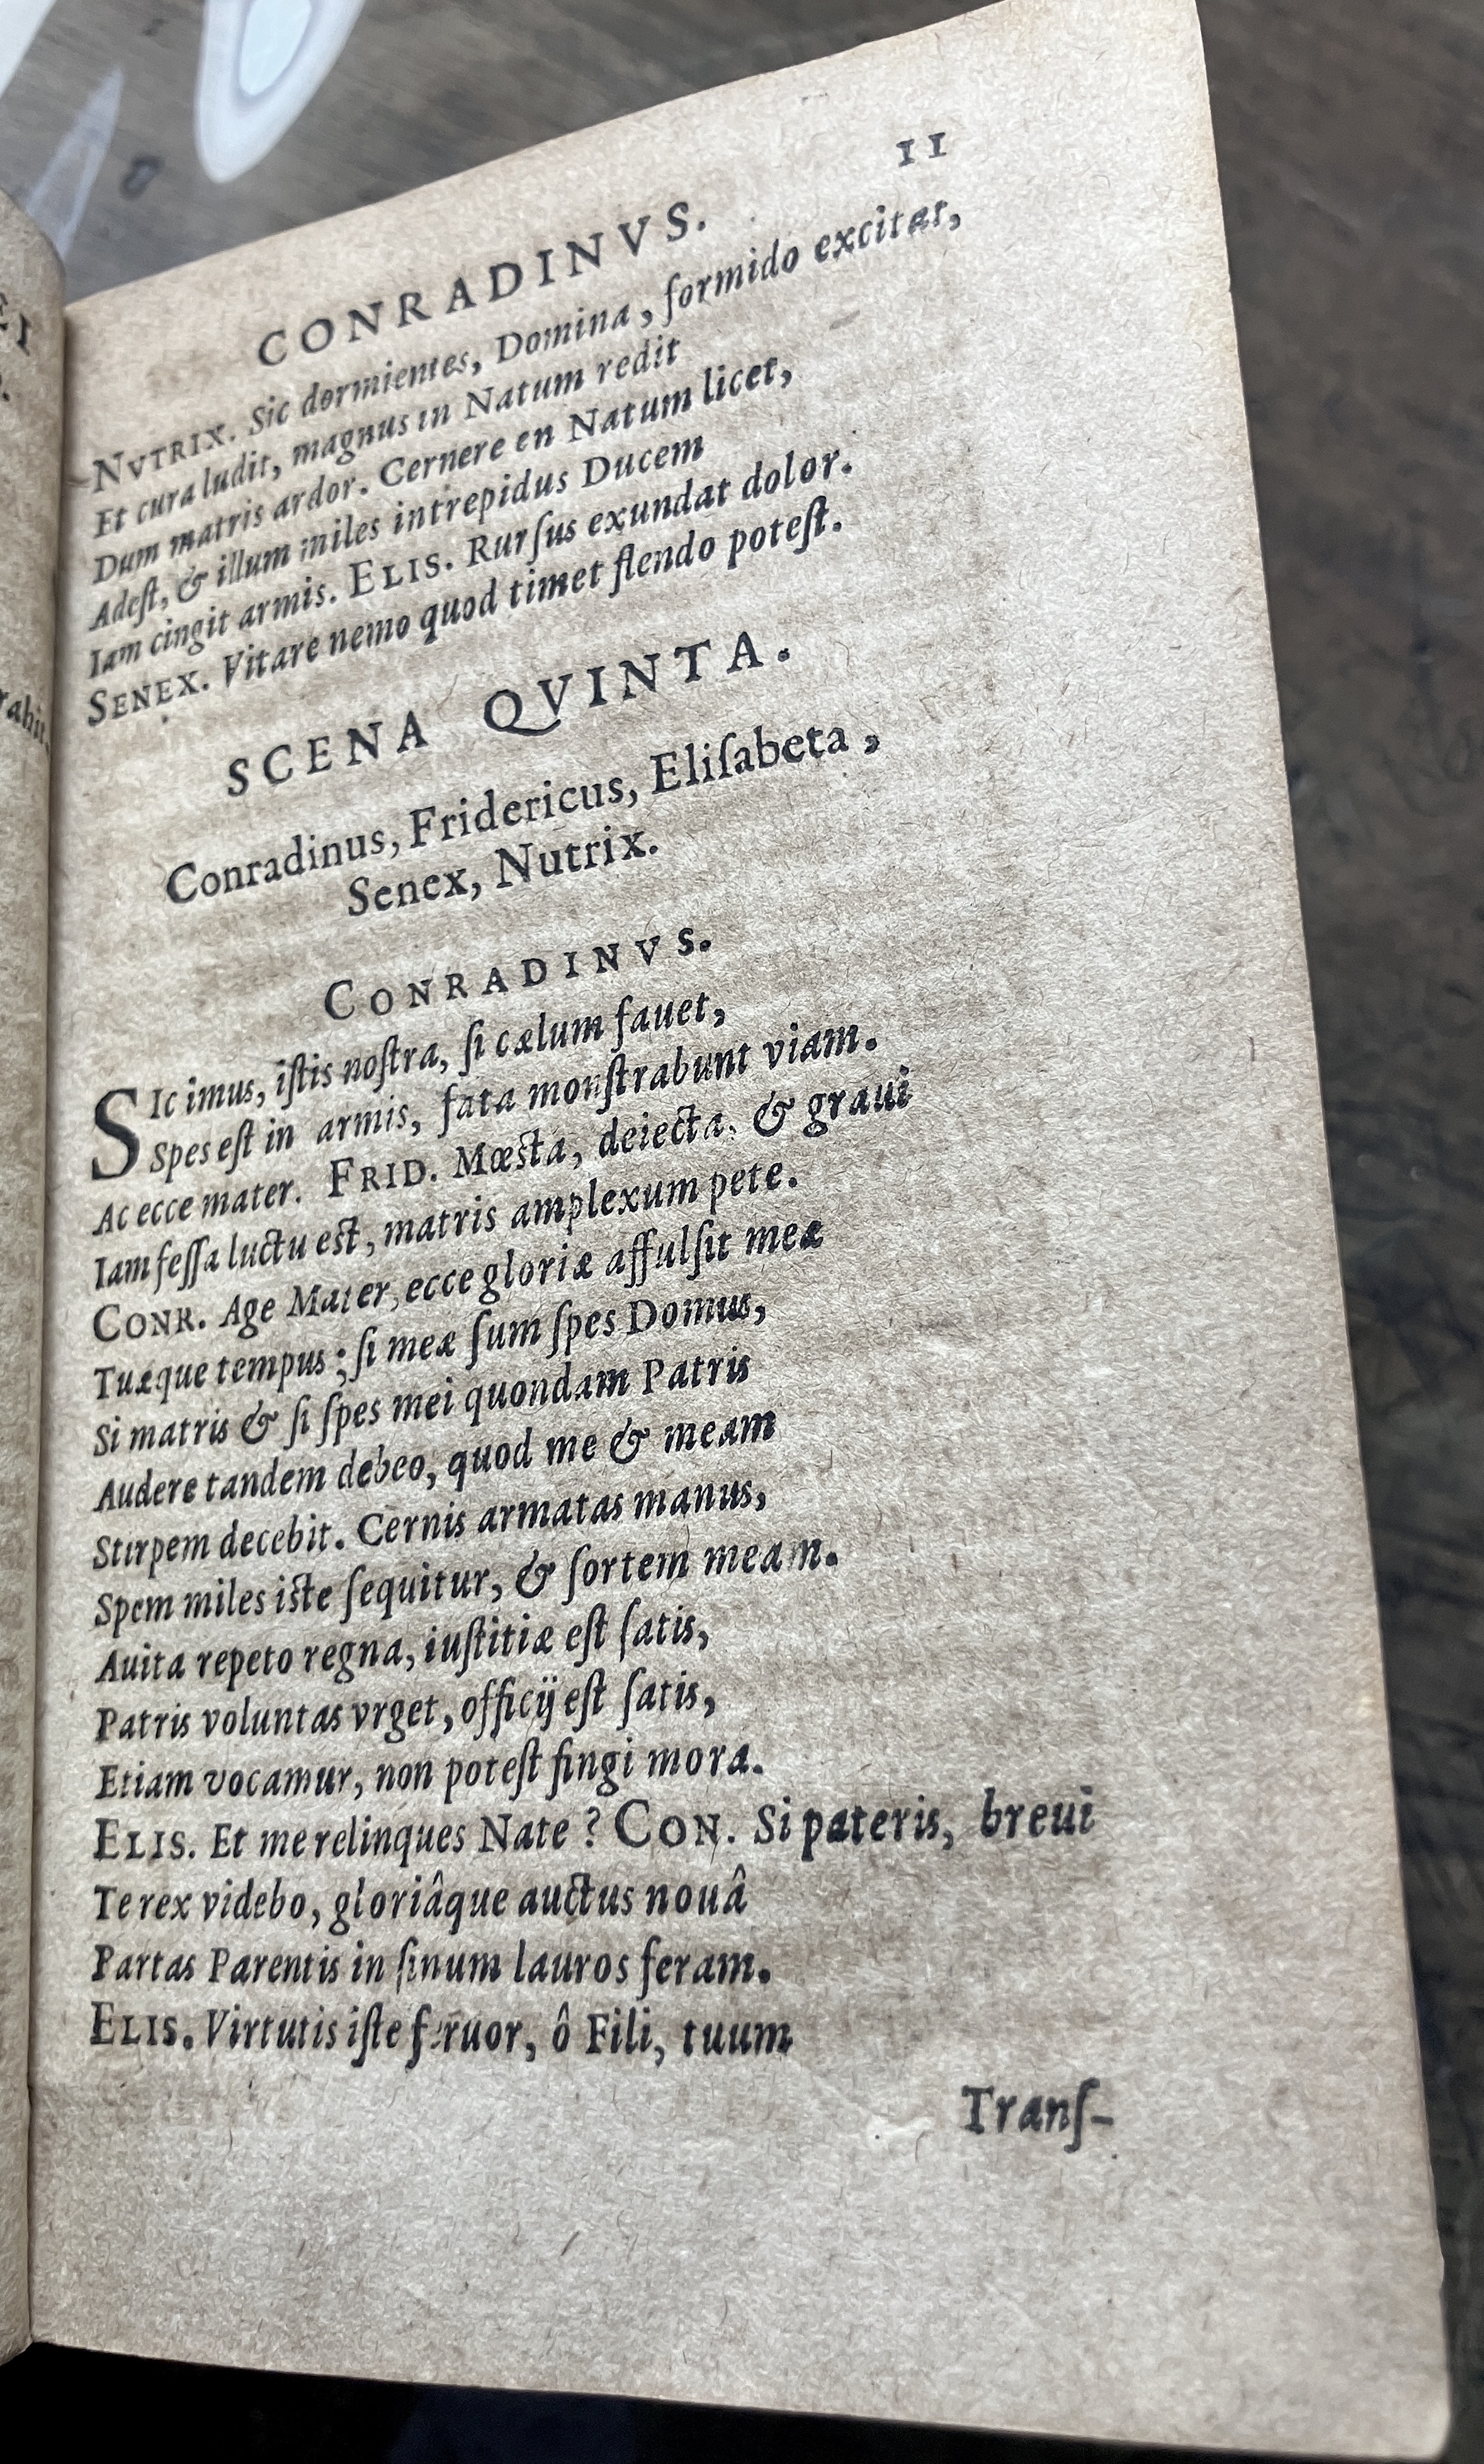 11
CONRADINVS.
NVTRIX. Sic dormientes, Domina, formido excitat,
Et cura ludit, magnus in Natum redit
Dum matris ardor. Cernere en Natum licet,
Adeſt, & illum miles intrepidus Ducem
Iam cingit armis. ELIS. Rurſus exundat dolor.
SENEX. Vitare nemo quod timet flendo poteſt.
SCENA QVINTA.
Conradinus, Fridericus, Eliſabeta,
Senex, Nutrix.
CONRADINVS.
SIc imus, iſtis noſtra, ſi cælum fauet,
Spes eſt in armis, fata monſtrabunt viam.
Ac ecce mater. FRID. Mœsta, deiecta, & graui
Iam feſſa luctu est, matris amplexum pete.
CONR. Age Mater, ecce gloriæ affulſit meæ
Tuæque tempus; ſi meæ ſum ſpes Domus,
Si matris & ſi ſpes mei quondam Patris
Audere tandem debeo, quod me & meam
Stirpem decebit. Cernis armatas manus,
Spem miles iste ſequitur, & ſortem meam.
Auita repeto regna, iuſtitiæ eſt ſatis,
Patris voluntas vrget, officij eſt ſatis,
Etiam vocamur, non poteſt fingi mora.
ELIS. Et me relinques Nate? CON. Si pateris, breui
Te rex videbo, gloriâque auctus nouâ
Partas Parentis in ſinum lauros feram.
ELIS. Virtutis iſte feruor, ô Fili, tuum
Tranſ-